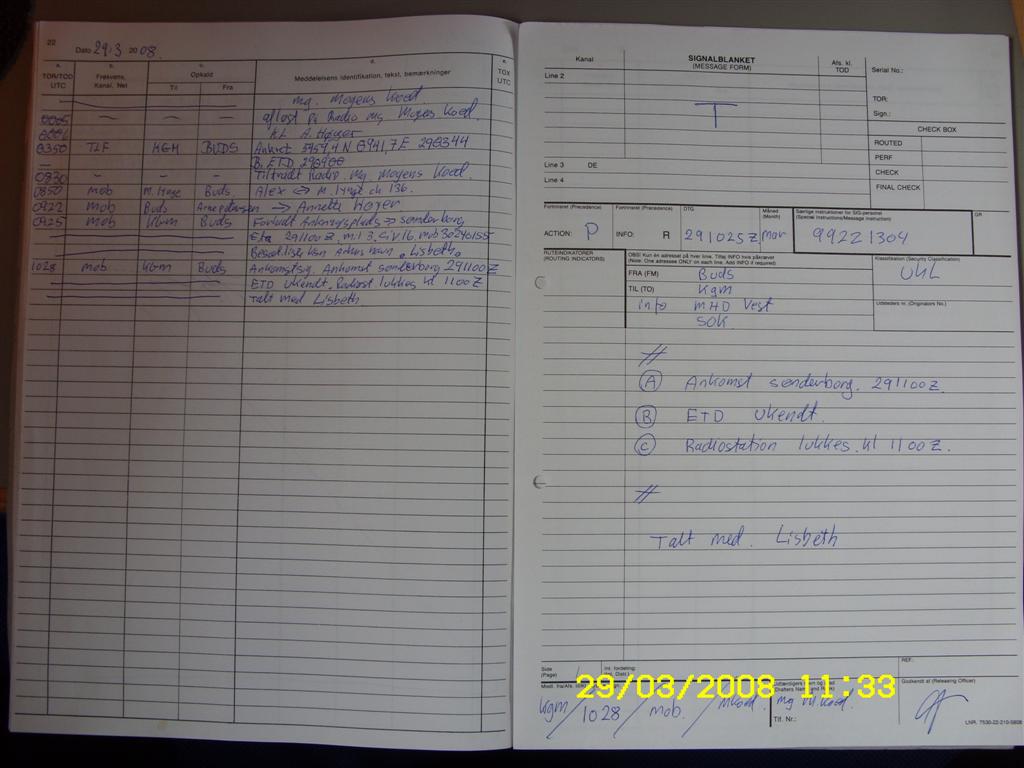 22
Dato 29.3 2008.
a. b. c. d. e.
TOR/TOD UTC
Frekvens, Kanal, Net
Opkald
Til Fra
Meddelelsens identifikation, tekst, bemærkninger
TOX UTC
mg. Mogens Koed
0005 afløst på Radio mg Mogens Koed.
A. Høyer
0350 TLF KGM BUDS Ankret 5454,4 N 0941,7 E 290344
B. ETD 290900
0830 Tiltrådt Radio. Mg. Mogens Koed.
0850 mob Buds. Alex <-> M. Lyngt ch 136.
0922 mob Buds -> Annette Høyer
0925 mob Kgm Buds Forladt Ankringsplads -> sønderborg
Eta 291100Z. mil 3. Civ 16. mob 30240155
"Lisbeth"
1028 mob. KGM Buds Ankomstsig. Ankomst sønderborg 291100Z
ETD Ukendt. Radiost lukkes kl 1100Z
Talt med Lisbeth
Kanal
SIGNALBLANKET
(MESSAGE FORM)
Afs. kl. TOD
Serial No.:
Line 2
T
TOR:
Sign.:
CHECK BOX
ROUTED
PERF
CHECK
FINAL CHECK
Line 3 DE
Line 4
Fortrinsret (Precedence)
ACTION: P
Fortrinsret (Precedence)
INFO: R
DTG
291025Z
Måned (Month)
Mar
Særlige instruktioner for SIG-personel
(Special Instructions/Message Instruction)
99221304
GR
RUTEINDIKATORER
(ROUTING INDICATORS)
OBS! Kun én adressat på hver linie. Tilføj INFO hvis påkrævet
(Note: One adressee ONLY on each line. Add INFO if required)
Klassifikation (Security Classification)
UKL
FRA (FM) Buds
TIL (TO) Kgm
info MHD Vest
SOK
Udsteders nr. (Originators No.)
//
(A) Ankomst sønderborg. 291100Z
(B) ETD Ukendt.
(C) Radiostation lukkes. kl 1100Z.
//
Talt med. Lisbeth
Side (Page) 1
Int. fordeling:
REF.:
29/03/2008 11:33
Kgm / 1028 / mob. / MKoed. mg M. Koed.
Tlf. Nr.:
Godkendt af (Releasing Officer)
LNR. 7530-22-210-5808